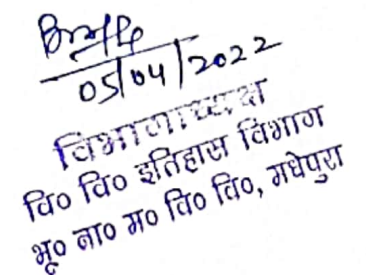 05/04/2022
विभागाध्यक्ष
वि० वि० इतिहास विभाग
भू० ना० म० वि० वि०, मधेपुरा